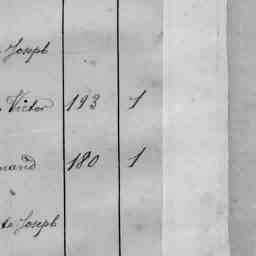 Joseph
Victor 193 1
mand 180 1
te Joseph